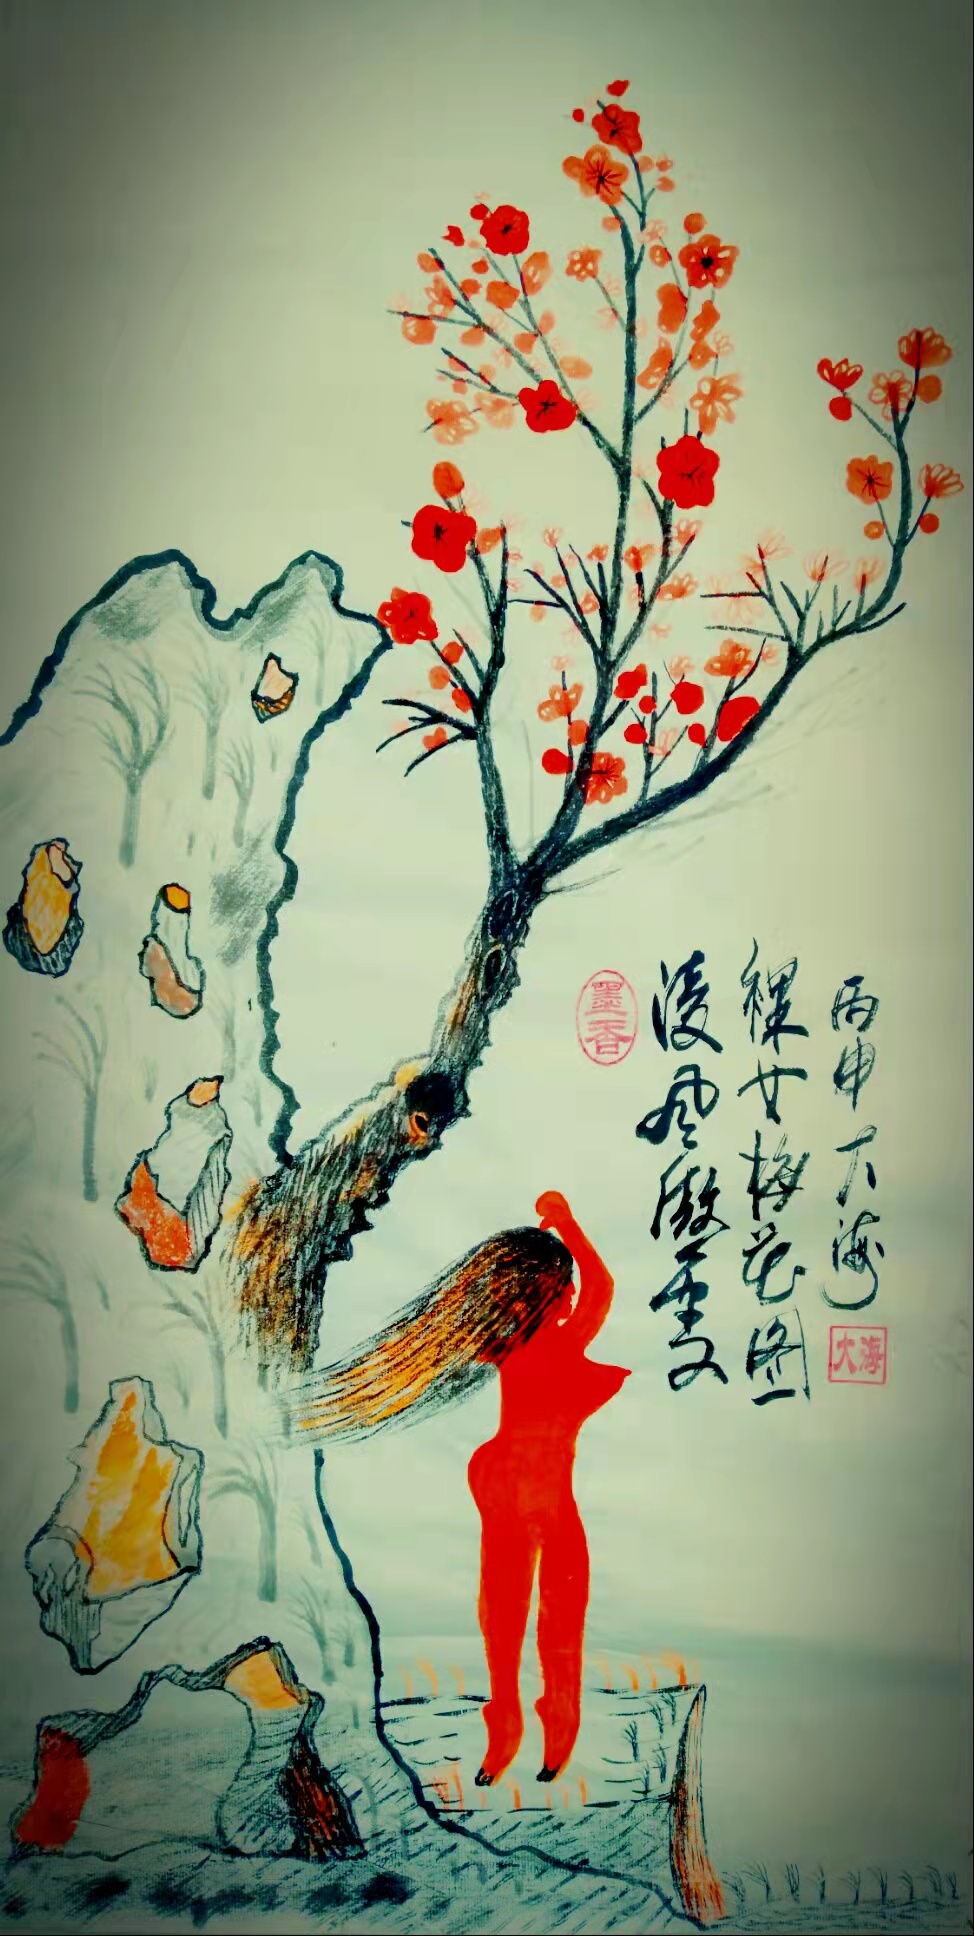 丙申大海
大海
裸女梅花图
淩风傲雪
墨香